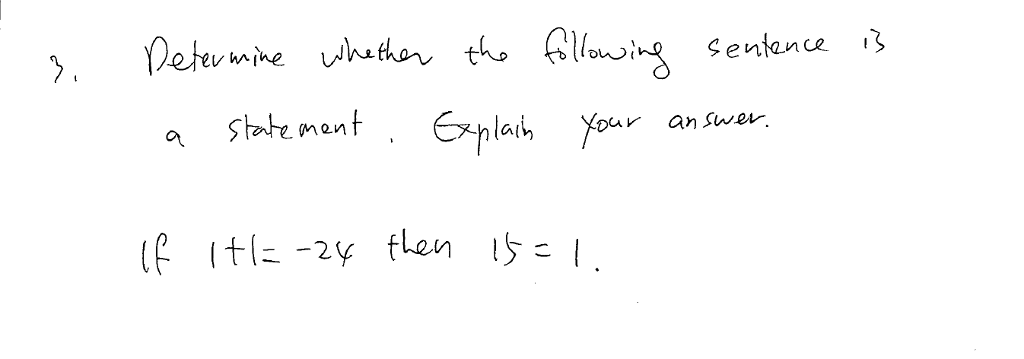 3. Determine whether the following sentence is
a statement. Explain your answer.
If 1+1= -24 then 15 = 1.